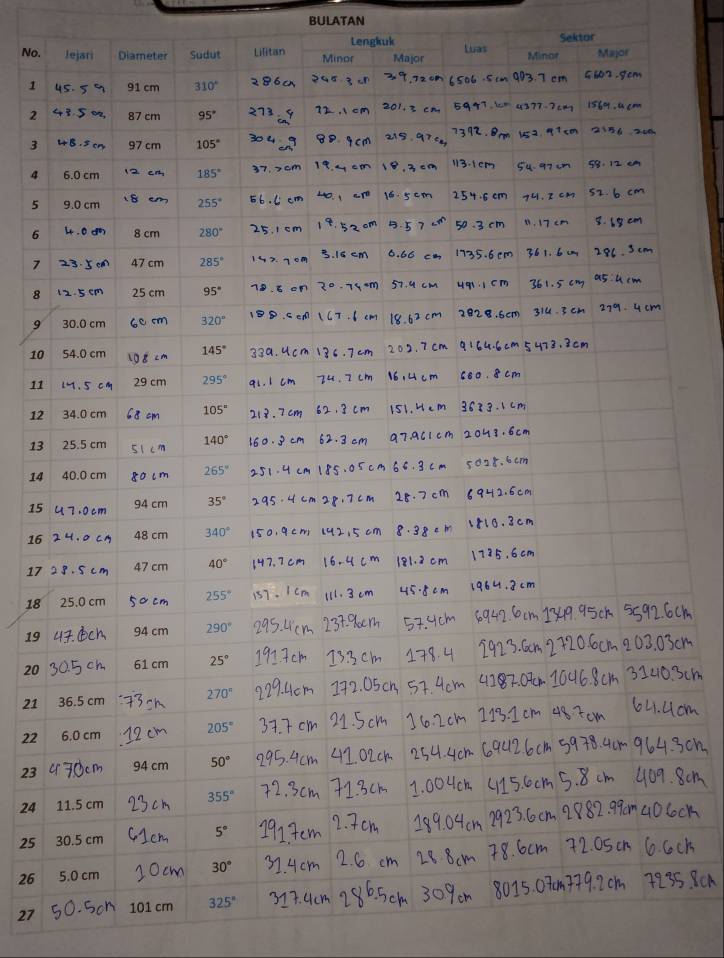 BULATAN
No. Jejari Diameter Sudut Lilitan Lengkuk Luas Sektor
Minor Major Minor Major
1 91 cm 310° 286cm 6506.5cm 903.7 cm
2 87 cm 95° 72.1cm 201.3 cm 4377.7cm 1569.4cm
3 48.5cm 97 cm 105° 304.9 cm 88.9cm 215.97cm
4 6.0 cm 12 cm 185° 37.7cm 19.4cm 18.3cm 113.1cm 54.97cm 58.12 cm
5 9.0 cm 18 cm 255° 56.6 cm 40.1 cm 16.5cm 254.5cm 74.2cm 52.6 cm
6 4.0 cm 8 cm 280° 25.1cm 19.52cm 5.57cm 50.3 cm 11.17cm
7 23.5cm 47 cm 285° 3.16 cm 6.66 cm 1735.6cm 361.6cm 286.3cm
8 12.5cm 25 cm 95° 78.5cm 20.74cm 57.9cm 491.1cm 361.5cm 95.4cm
9 30.0 cm 60 cm 320° 188.5cm 167.6cm 18.62cm 2828.6cm 314.3cm 279.4cm
10 54.0 cm 108 cm 145° 339.4cm 136.7cm 202.7cm 9164.6cm 5473.3cm
11 14.5cm 29 cm 295° 91.1cm 74.7cm 16.4cm 660.8cm
12 34.0 cm 68 cm 105° 213.7cm 62.3cm 151.4cm 3633.1cm
13 25.5 cm 51cm 140° 160.3cm 62.3cm 97.961cm 2043.6cm
14 40.0 cm 80cm 265° 251.4cm 185.05cm 66.3cm 5028.6cm
15 47.0cm 94 cm 35° 295.4cm 28.7cm 28.7cm 6942.6cm
16 24.0cm 48 cm 340° 150.9cm 142.5cm 8.38cm 1810.3cm
17 28.5cm 47 cm 40° 147.7cm 16.4cm 181.3cm 1735.6cm
18 25.0 cm 50cm 255° 157.1cm 111.3cm 45.8cm 1964.3cm
19 94 cm 290° 295.4cm 237.96cm 57.4cm 6942.6cm 1349.95cm 5592.6cm
20 30.5cm 61 cm 25° 191.7cm 13.3cm 178.4 2923.6cm 2720.6cm 203.03cm
21 36.5 cm 73cm 270° 229.4cm 172.05cm 57.4cm 4187.07cm 1046.8cm 3140.3cm
22 6.0 cm 12cm 205° 37.7cm 21.5cm 16.2cm 113.1cm 48.7cm 64.4cm
23 470cm 94 cm 50° 295.4cm 41.02cm 254.4cm 6942.6cm 5978.4cm 964.3cm
24 11.5 cm 23cm 355° 72.3cm 71.3cm 1.004cm 415.6cm 5.8cm 409.8cm
25 30.5 cm 61cm 5° 191.7cm 2.7cm 189.04cm 2923.6cm 2882.99cm 40.6cm
26 5.0 cm 10cm 30° 31.4cm 2.6 cm 28.8cm 78.6cm 72.05cm 6.6cm
27 50.5cm 101 cm 325° 317.4cm 286.5cm 309cm 8015.07cm 779.2cm 7235.8cm